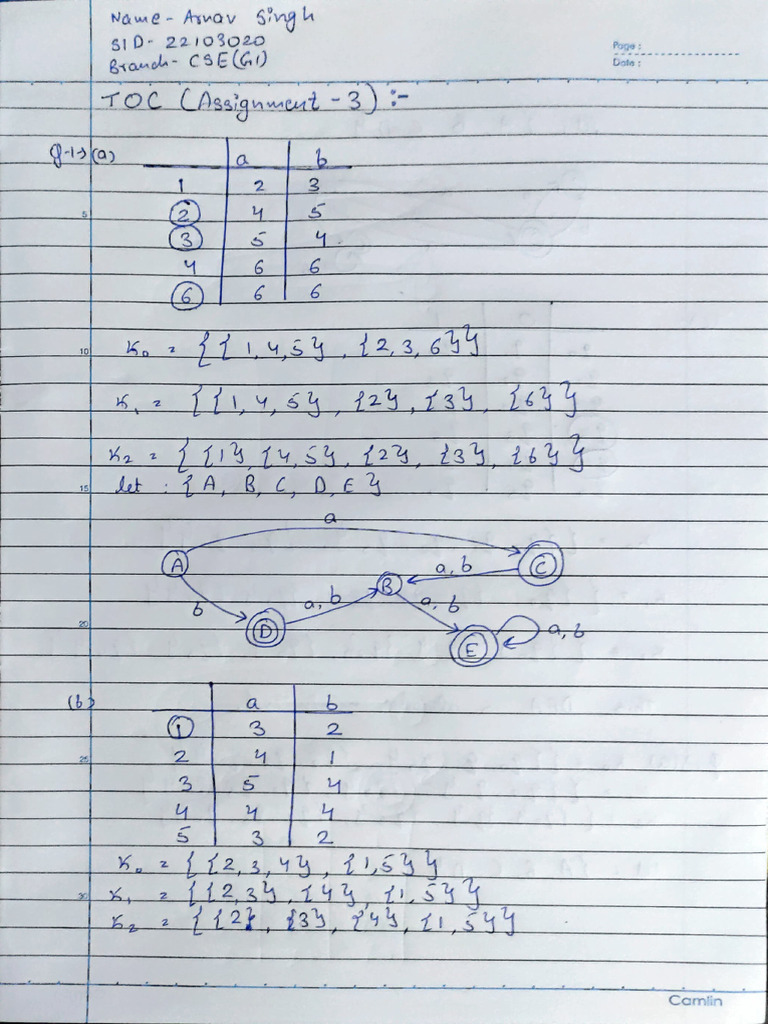 Name- Arnav Singh
SID- 22103020
Branch- CSE(G1)
Page :
Date :
TOC (Assignment - 3) :-
Q-1→ (a)
a b
1 2 3
5 2 4 5
3 5 4
4 6 6
6 6 6
10 K0 = { { 1, 4, 5 } , { 2, 3, 6 } }
K1 = { { 1, 4, 5 } , { 2 } , { 3 } , { 6 } }
K2 = { { 1 } , { 4, 5 } , { 2 } , { 3 } , { 6 } }
15 let : { A, B, C, D, E }
a
A a, b C
B
b a, b a, b
20 D E a, b
(b) a b
1 3 2
25 2 4 1
3 5 4
4 4 4
5 3 2
K0 = { { 2, 3, 4 } , { 1, 5 } }
30 K1 = { { 2, 3 } , { 4 } , { 1, 5 } }
K2 = { { 2 } , { 3 } , { 4 } , { 1, 5 } }
Camlin